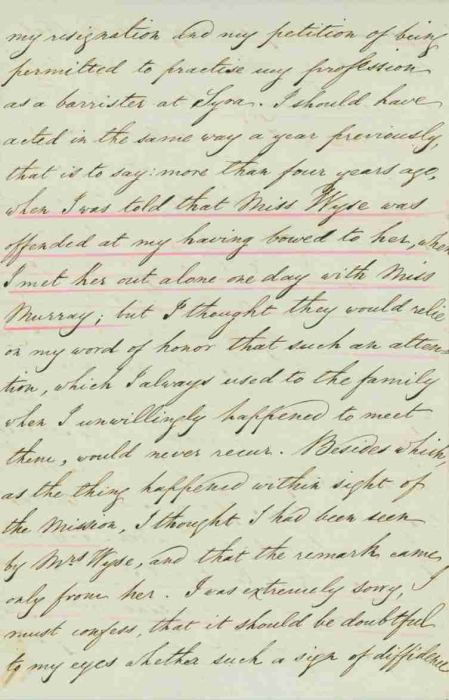 my resignation and my petition of being
permitted to practise my profession
as a barrister at Syra. I should have
acted in the same way a year previously,
that is to say: more than four years ago,
when I was told that Miss Wyse was
offended at my having bowed to her, when
I met her out alone one day with Miss
Murray; but I thought they would relie
on my word of honor that such an atten-
tion, which I always used to the family
when I unwillingly happened to meet
them, would never recur. Besides which,
as the thing happened within sight of
the Mission, I thought I had been seen
by Mrs Wyse, and that the remark came
only from her. I was extremely sorry, I
must confess, that it should be doubtful
to my eyes whether such a sign of diffidence